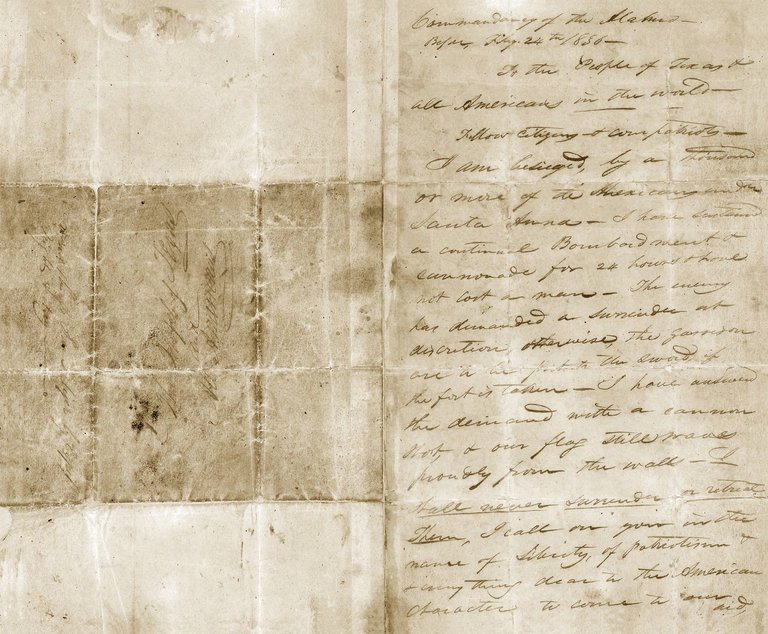 Commandancy of the Alamo—
Bejar, Fby. 24th 1836—
To the People of Texas &
all Americans in the world—
Fellow Citizens & compatriots—
I am besieged, by a thousand
or more of the Mexicans under
Santa Anna — I have sustained
a continual Bombardment &
cannonade for 24 hours & have
not lost a man — The enemy
has demanded a surrender at
discretion, otherwise, the garrison
are to be put to the sword, if
the fort is taken — I have answered
the demand with a cannon
shot, & our flag still waves
proudly from the walls — I
shall never surrender or retreat
Then, I call on you in the
name of Liberty, of patriotism &
& everything dear to the American
character, to come to our aid,